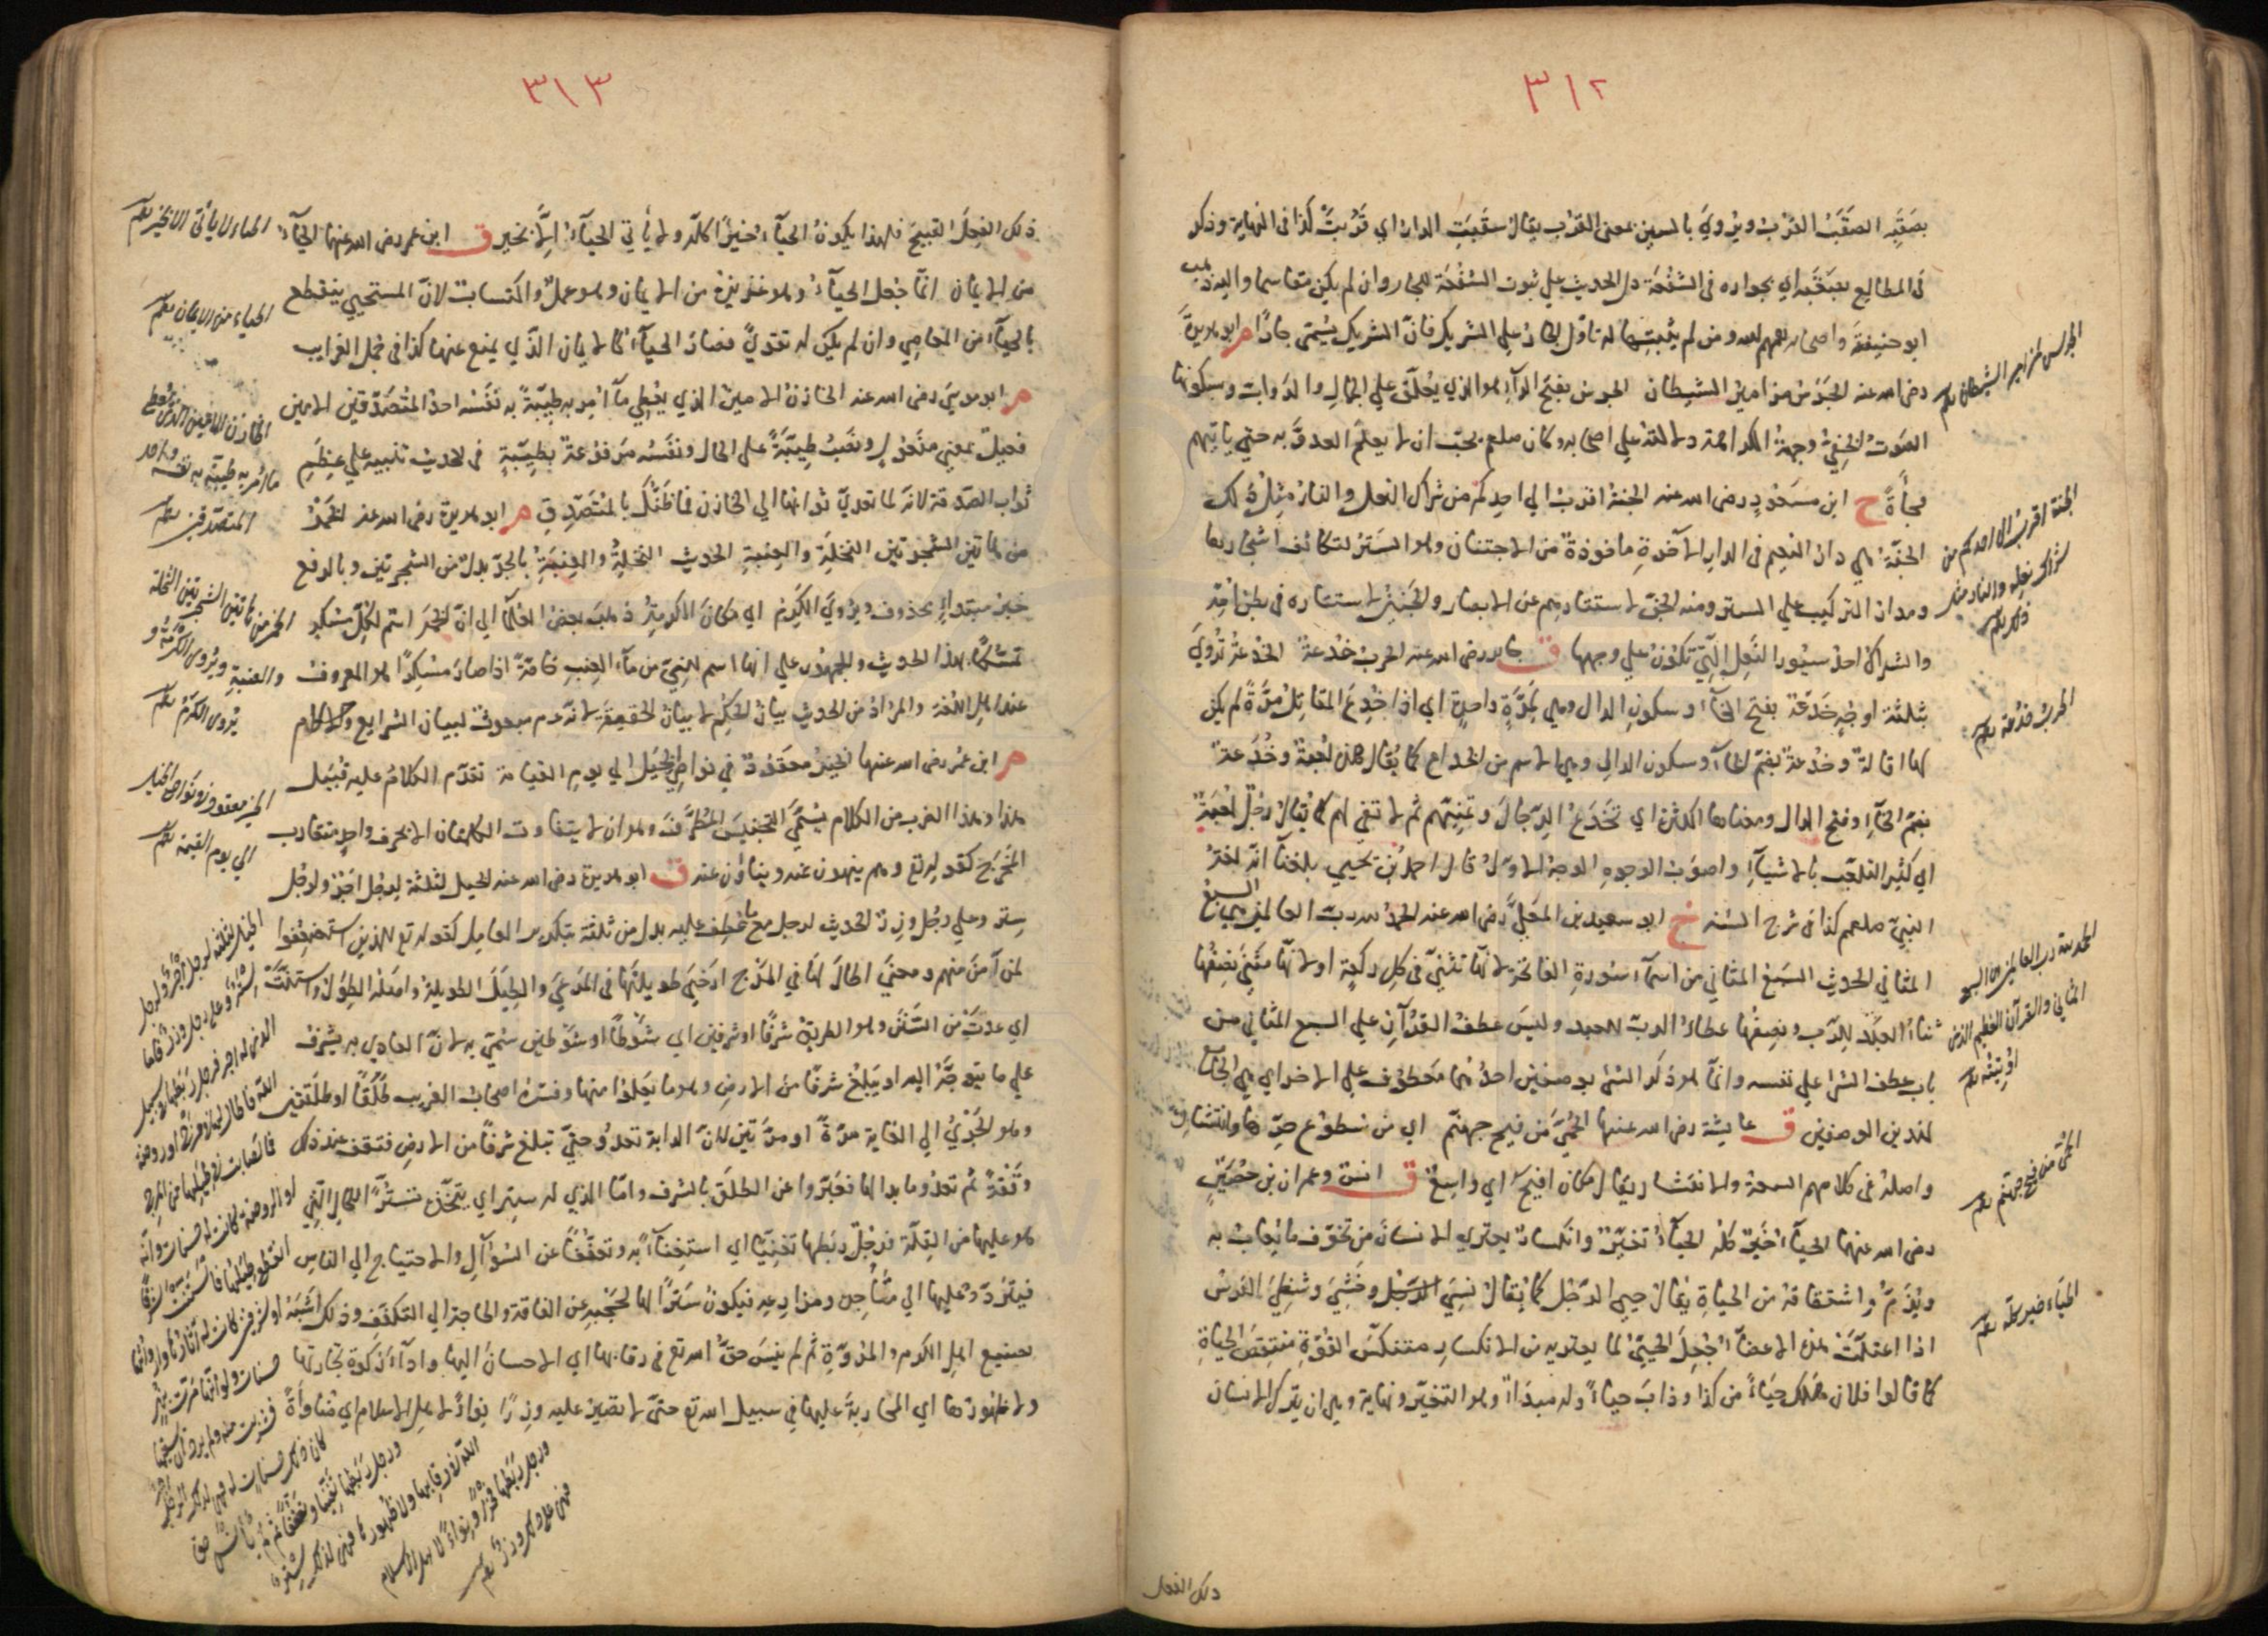 ٣١٢
بصَقَبِه الصَقَبُ القرب ويُروي بالسين بمعنى القرب يقال سقبت الدار اي قربت كذا فى النهاية وذكر
فى المطالع بصقبه اي بجواره فى الشفعة دل الحديث علي ثبوت الشفعة للجار وان لم يكن مقاسما واليه ذهب
ابو حنيفة واصحابه رحمهم الله ومن لم يثبتها له تاول الجار علي الشريك فان الشريك يسمى جارا م ابو هريرة
رضى الله عنه الجرس مزامير الشيطان الجرس بفتح الراء هو الذي يعلق علي الجمال والدواب وسكونها
الصوت الخفي وجهة الكراهة دلالته علي اصحابه وكان صلعم يحب ان لا يعلم العدو به حتي ياتيهم
فجأة خ ابن مسعود رضى الله عنه الجنة اقرب الي احدكم من شراك النعل والنار مثل ذلك
الجنة هي دار النعيم فى الدار الآخرة ماخوذة من الاجتنان وهو الستر لتكاثف اشجارها
ومدار التركيب علي الستر ومنه الجن لاستتارهم عن الابصار والجنين لاستتاره فى بطن امه
والشراك احد سيور النعل التي تكون علي وجهها ق جابر رضى الله عنه الحرب خدعة الخدعة تروي
بثلثة اوجه خدعة بفتح الخاء وسكون الدال وهي بمرة واحدة اي اذا خدع المقاتل مرة لم يكن
لها اقالة وخدعة بضم الخاء وسكون الدال وهي الاسم من الخداع كما يقال هذه لعبة وخدعة
بضم الخاء وفتح الدال ومعناها الكثرة اي تخدع الرجال وتمنيهم ثم لا تفي لهم كما يقال رجل لعبة
اي كثير التلعب بالاشياء واصوب الوجوه الوجه الاول قال احمد بن يحيي بلغنا انه لغة
النبي صلعم كذا فى شرح السنه خ ابو سعيد بن المعلي رضى الله عنه الحمد لله رب العالمين هي السبع
المثاني الحديث السبع المثاني من اسماء سورة الفاتحة لانها تثني فى كل ركعة او لانها مثني نصفها
ثناء العبد للرب ونصفها عطاء الرب للعبد وليس عطف القرآن علي السبع المثاني من
باب عطف الشئ علي نفسه وانما هو ذكر الشئ بوصفين احدهما معطوف علي الاخر اي هي الجامعة
لهذين الوصفين ق عايشة رضى الله عنها الحمى من فيح جهنم اي من سطوع حرها وانتشاره
واصله فى كلامهم السعة والانتشار يقال مكان افيح اي واسع ق انس وعمران بن حصين
رضى الله عنهما الحياء خير كله الحياء تغير وانكسار يعتري الانسان من تخوف ما يعاب به
ويذم واشتقاقه من الحياة يقال حيي الرجل كما يقال نسي الرجل وخشي وشظي الفرس
اذا اعتلت هذه الاعضاء جعل الحيي لما يعتريه من الانكسار متنكس القوة منتقص الحياة
كما قالوا فلان هلك حياء من كذا وذاب حياء وله مبداء وهو التغير ونهاية وهي ان يترك الانسان
ذلك الفعل
الجرس مزامير الشيطان
الجنة اقرب الى احدكم من
شراك نعله والنار مثل
ذلك
الحرب خدعة
الحمد لله رب العالمين هي السبع
المثاني والقرآن العظيم الذي
اوتيته
الحمى من فيح جهنم
الحياء خير كله
٣١٣
ذلك الفعل القبيح فلهذا يكون الحياء خيرا كله ولا يأتي الحياء الا بخير ق ابن عمر رضى الله عنهما الحياء
من الايمان انما جعل الحياء وهو غريزة من الايمان وهو عمل واكتساب لان المستحيي ينقطع
بالحياء من المعاصي وان لم يكن له تقوي فصار الحياء كالايمان الذي يمنع عنها كذا فى مجمل الغرايب
م ابو موسي رضى الله عنه الخازن الامين الذي يعطي ما امر به طيبة به نفسه احد المتصدقين الامين
فعيل بمعني مفعول ونصب طيبة على الحال ونفسه مرفوعة بطيبة فى الحديث تنبيه علي عظم
ثواب الصدقة لانه لما تعدي ثوابها الي الخازن فما ظنك بالمتصدق م ابو هريرة رضى الله عنه الخمر
من هاتين الشجرتين النخلة والعنبة الحديث النخلة والعنبة بالجر بدل من الشجرتين وبالرفع
خبر مبتداء محذوف ويروي الكرم اي مكان الكرمة ذهب بعض العلماء الي ان الخمر اسم لكل مسكر
تمسكا بهذا الحديث والجمهور علي انها اسم للنيء من ماء العنب خاصة اذا صار مسكرا هو المعروف
عند اهل اللغة والمراد من الحديث بيان الحكم لا بيان الحقيقة لانه عم مبعوث لبيان الشرايع والاحكام
م ابن عمر رضى الله عنهما الخير معقود في نواصي الخيل الي يوم القيامة تقدم الكلام عليه قبيل
هذا وهذا الضرب من الكلام يسمي التجنيس المطرف وهو ان لا يتفاوت الكلمتان الا بحرف واحد متقارب
المخرج كقوله تع وهم ينهون عنه ويناؤن عنه ق ابو هريرة رضى الله عنه الخيل لثلثة لرجل اجر ولرجل
ستر وعلي رجل وزر الحديث لرجل مع ما عطف عليه بدل من ثلثة بتكرير العامل كقوله تع للذين استضعفوا
لمن آمن منهم ومعني اطال لها في المرج ارخي طويلتها فى المرعي والطيل الطويلة واصله الطول واستنت
اي عدت من السنن وهو الطريق شرفا او شرفين اي شوطا او شوطين سمي به لان العادي به يشرف
علي ما يتوجه اليه او يبلغ شرفا من الارض وهو ما يعلو منها وفسره اصحاب الغريب طلقا او طلقين
وهو الجري الي الغاية مرة او مرتين لان الدابة تعدو حتي تبلغ شرفا من الارض فتقف عند ذلك
وقفة ثم تعدو ما بدا لها فعبروا عن الطلق بالشرف واما الذي له ستر اي يتخذه تسترا للحال التي
هو عليها من القلة فرجل ربطها تغنيا اي استغناء به وتعففا عن السؤال والاحتياج الي الناس
فيتردد عليها الي متاجره ومزارعه فيكون سترا لها لحجبه عن الفاقة والحاجة الي التكفف وذلك اشبه
بصنيع اهل الكرم والمروة ثم لم ينس حق الله تع فى رقابها اي الاحسان اليها واداء زكوة تجارتها
ولا ظهورها اي المحاربة عليها في سبيل الله تع حتي لا تصير عليه وزرا نواء لاهل الاسلام اي مناوأة
الحياء لا يأتى الا بخير
الحياء من الايمان
الخازن الامين الذى يعطى
ما امر به طيبة به نفسه احد
المتصدقين
الخمر من هاتين الشجرتين النخلة
والعنبة ويروى الكرمة و
يروى الكرم
الخير معقود فى نواصى الخيل
الى يوم القيمة
الخيل لثلثة لرجل اجر ولرجل
ستر وعلى رجل وزر فاما
الذى له اجر فرجل ربطها فى سبيل
الله فاطال لها فى مرج او روضة
فما اصابت فى طيلها من المرج
او الروضة كانت له حسنات ولو انه
انقطع طيلها فاستنت شرفا
او شرفين كانت له آثارها وارواثها
حسنات ولو انها مرت بنهر
فشربت منه ولم يرد ان يسقيها
كان ذلك حسنات له فهى لذلك الرجل اجر
ورجل ربطها تغنيا وتعففا ثم لم ينس حق
الله فى رقابها ولا ظهورها فهى لذلك ستر
ورجل ربطها فخرا ونواء لاهل الاسلام
فهى على ذلك وزر